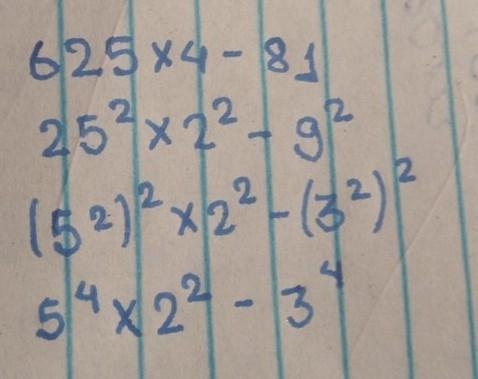 625×4-81
25²×2²-9²
(5²)²×2²-(3²)²
5⁴×2²-3⁴